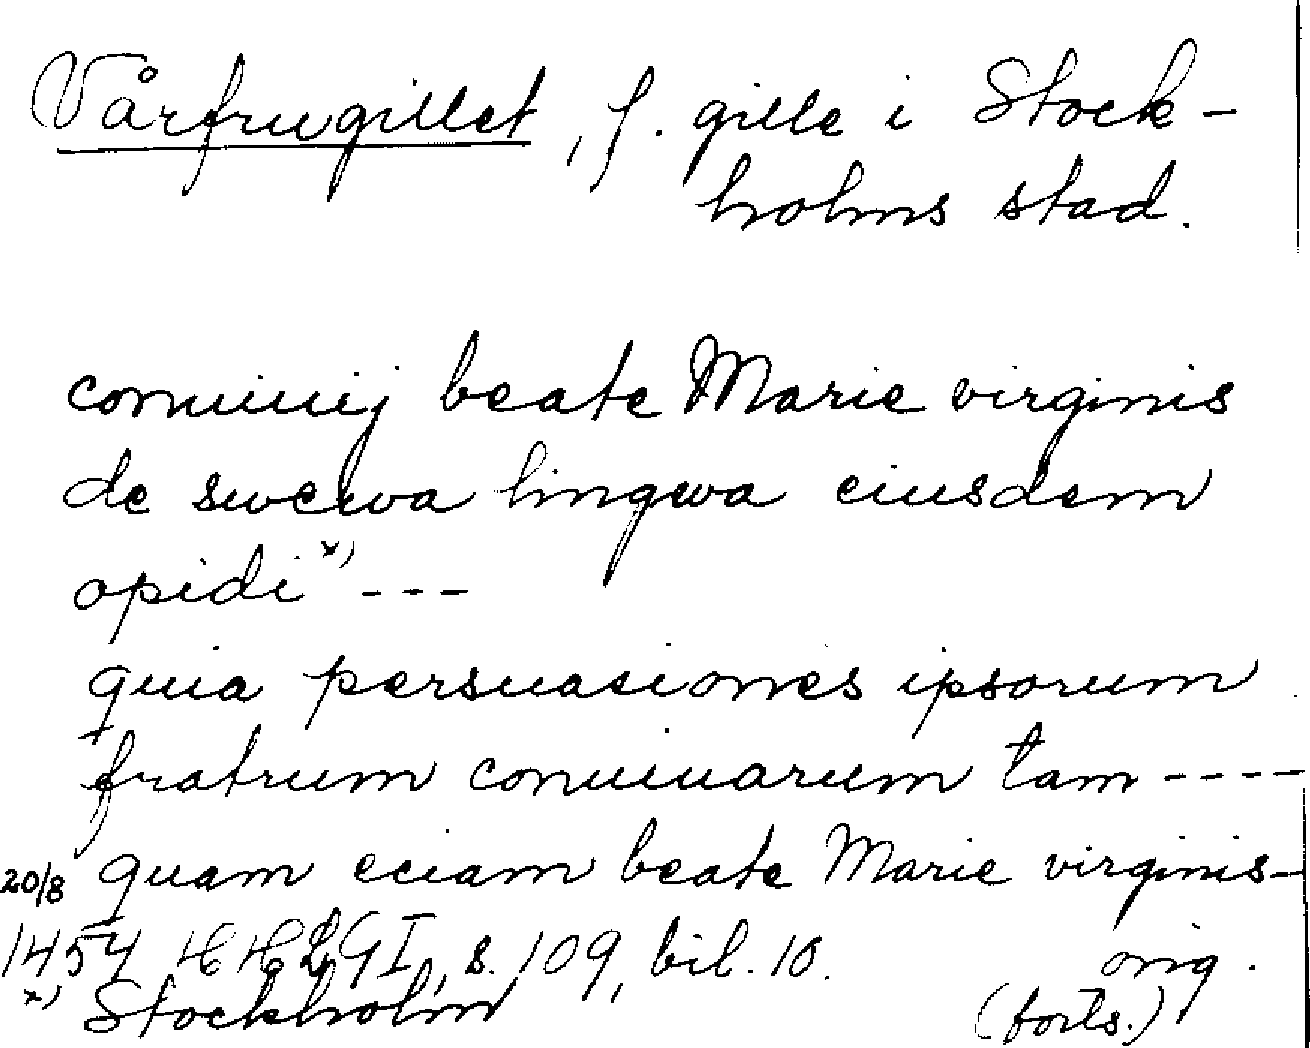 Vårfrugillet, f. gille i Stock-
holms stad.
conuiuij beate Marie virginis
de swewa lingwa eiusdem
opidi x) ---
quia persuasiones ipsorum
fratrum conuiuarum tam ----
quam eciam beate Marie virginis-
20/8
1454 HHLGI, s. 109, bil. 10. orig.
x) Stockholm (forts.)